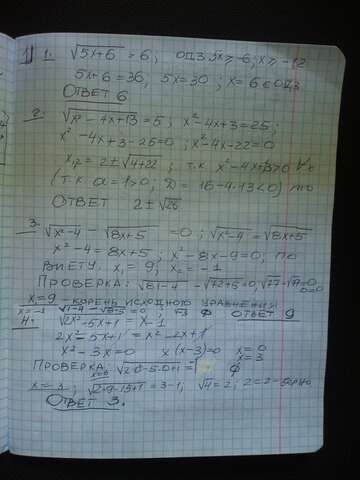 1) 1. √5x+6 = 6; ОДЗ 5x ≥ -6; x ≥ -12
5x+6=36, 5x=30; x=6 ∈ ОДЗ
ОТВЕТ 6
2. √x²-4x+13 = 5; x²-4x+3=25;
x²-4x+3-25=0; x²-4x-22=0
x₁,₂ = 2±√4+22; т.к x²-4x+13>0
(т.к. a=1>0; D=16-4·13<0) то
ОТВЕТ 2±√26
3. √x²-4 - √8x+5 = 0; √x²-4 = √8x+5
x²-4=8x+5; x²-8x-9=0; по
ВИЕТУ. x₁=9; x₂=-1
ПРОВЕРКА: √81-4 - √72+5=0; √77-√77=0
0=0
x=9 - КОРЕНЬ ИСХОДНОГО УРАВНЕНИЯ
x=-1 √1-4 - √-8+5 = 0; √-3 ∅ ОТВЕТ 9
4. √2x²-5x+1 = x-1
2x²-5x+1 = x²-2x+1
x²-3x=0 x(x-3)=0 x=0
x=3
ПРОВЕРКА x=0 ∅
x=3; √2·9-15+1=3-1; √4=2; 2=2-верно
ОТВЕТ 3.